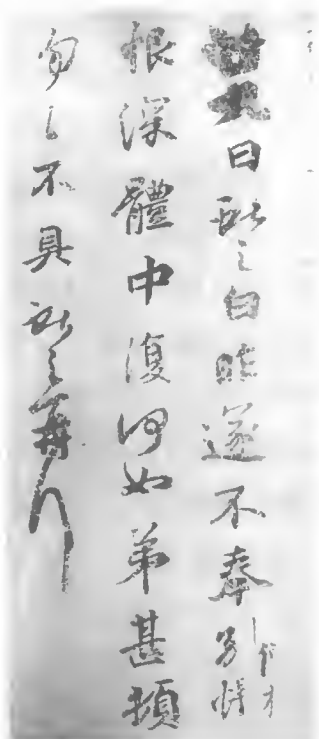 廿九日獻之白昨遂不奉別悵
恨深體中復何如弟甚頓
匆〻不具獻之再拜